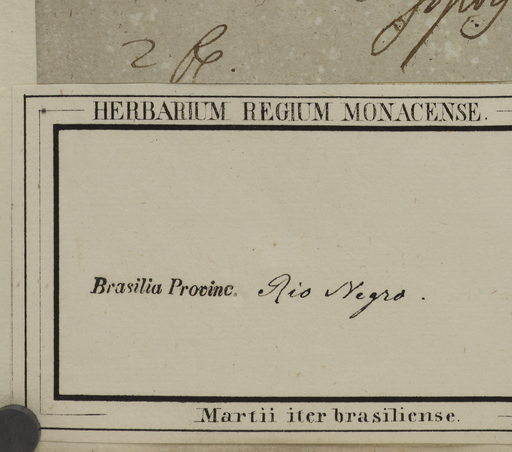 HERBARIUM REGIUM MONACENSE.
Brasilia Provinc. Rio Negro.
Martii iter brasiliense.